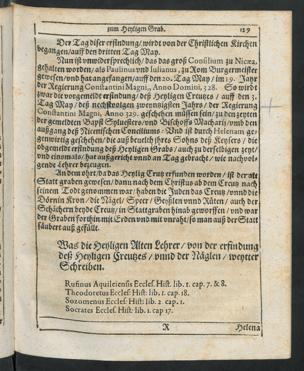 zum Heyligen Grab. 129
Der Tag diser erfindung / wirdt von der Christlichen Kirchen
begangen / auff den dritten Tag May.
Nun ist vnwidersprechlich / das das groß Consilium zu Nicæa,
gehalten worden / als Paulinus vnd Iulianus, zu Rom Burgermeister
gewesen / vnd hat angefangen / auff den 20. Tag May / im 19. Jahr
der Regierung Constantini Magni, Anno Domini, 328. So wirdt
zwar die vorgemelte erfindung deß Heyligen Creutzes / auff den 3.
Tag May / deß nechstuolgen zwenntzigsten Jahrs / der Regierung
Constantini Magni, Anno 329. geschehen müssen sein / zu den zeyten
der gemelten Bäpst Syluesters / vnd Bischoffs Macharij / vnd den
außgang deß Nicenischen Conciliums. Vnd ist durch Helenam
genwirtig geschehen / die auß beuelch jhrs Sohns deß Keysers / die
obgemeldte erfindung deß Heyligen Grabs / auch zu derselbigen zeyt /
vnd einsmals / hat außgericht vnnd an Tag gebracht / wie nachuol-
gende Lehrer bezeugen.
An dem ohrt / da das Heylig Creutz erfunden worden / ist der alt
Statt graben gewesen / dann nach dem Christus ab dem Creutz nach
seinem Todt genommen war / haben die Juden das Creutz / vnnd die
Dörnin Kron / die Nägel / Speer / Geißlen vnnd Räten / auch der
Schächern beyde Creutz / in Stattgraben hinab geworffen / vnd war
der Graben forthin mit Erden vnd mit vnraht / so man auß der Statt
säubert auß gefüllt.
Was die Heyligen Alten Lehrer / von der erfindung
deß Heyligen Creutzes / vnnd der Näglen / weytter
Schreiben.
Rufinus Aquileiensis Eccles. Hist. lib. 1. cap. 7. & 8.
Theodoretus Eccles. Hist. lib. 1. cap. 18.
Sozomenus Eccles. Hist. lib. 2. cap. 1.
Socrates Eccles. Hist. lib. 1. cap 17.
R Helena